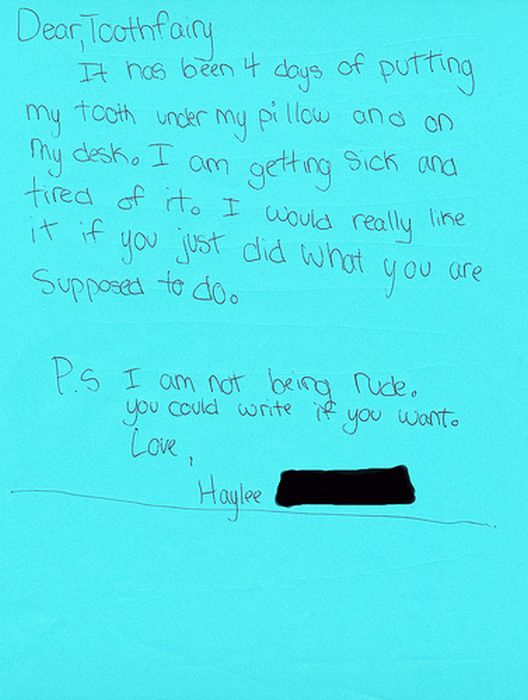 Dear, Toothfairy
It has been 4 days of putting
my tooth under my pillow and on
my desk. I am getting sick and
tired of it. I would really like
it if you just did what you are
supposed to do.
P.S I am not being rude.
you could write if you want.
Love,
Haylee